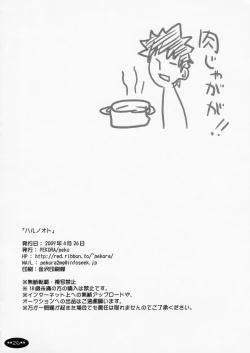 肉じゃがが!!
「ハルノオト」
発行日：2009年4月26日
発行：PEKORA/peko
HP：http://red.ribbon.to/~pekora/
MAIL：pekora2me@infoseek.jp
印刷：金沢印刷様
※無断転載・複写禁止
※18歳未満の方の購入は禁止です。
※インターネット上への無断アップロードや、
オークションへの出品はご遠慮願います。
※万が一問題が起きた場合でも責任は取れませんのでご了承ください。